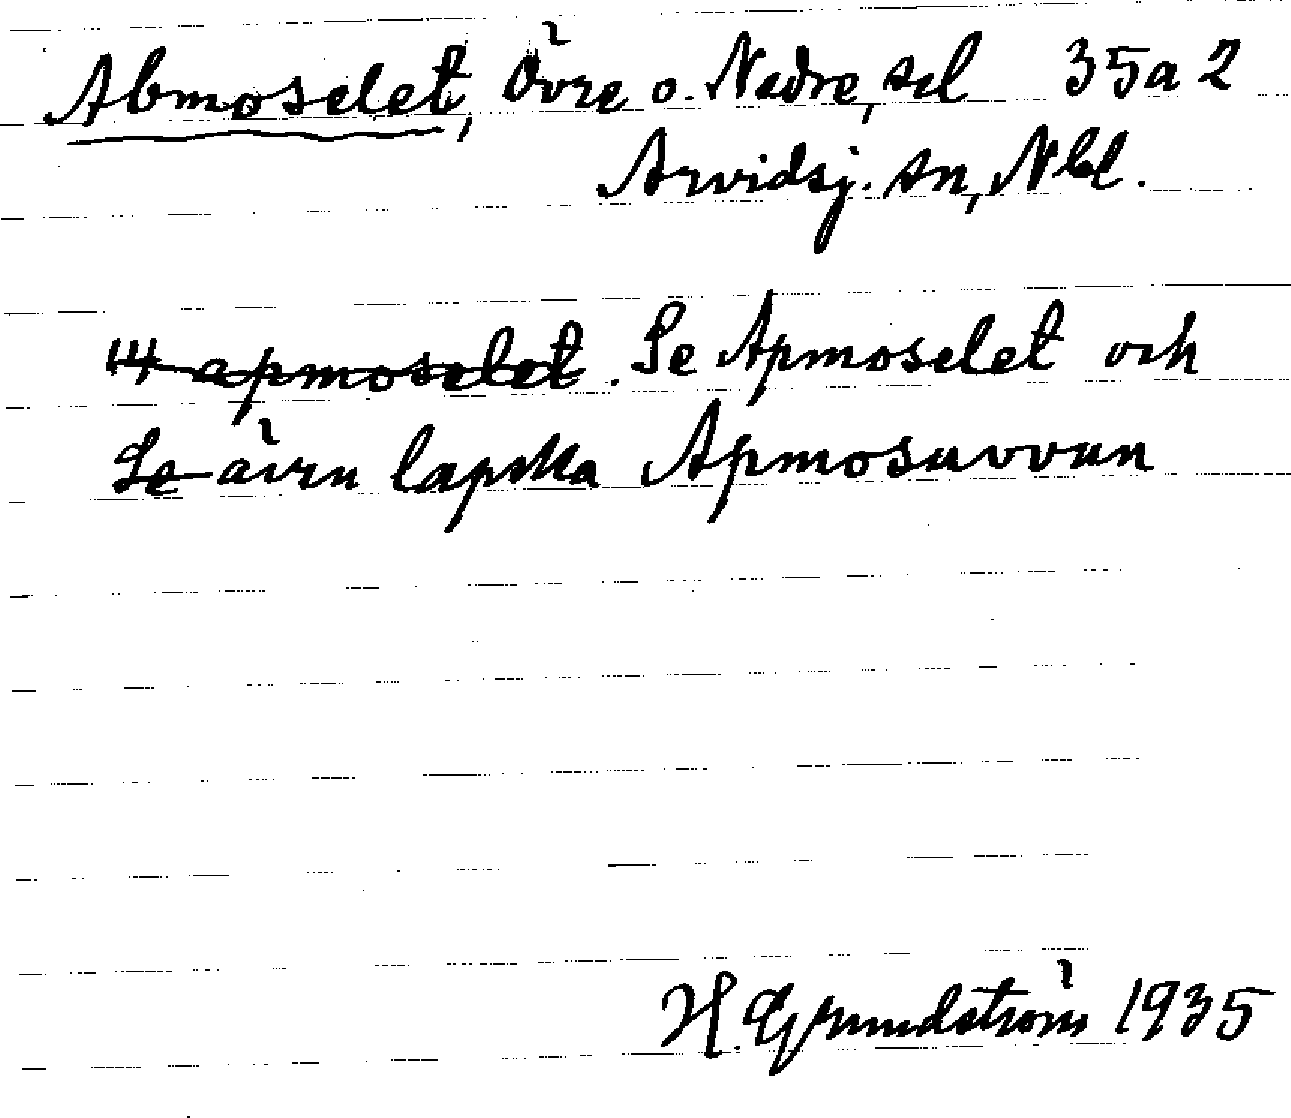 Abmoselet, Övre o. Nedre, sel 35a2
Arvidsj. sn, Nbl.
14 apmoselet. Se Apmoselet och
Se även lapska Apmosuvvan
H. Grundström 1935